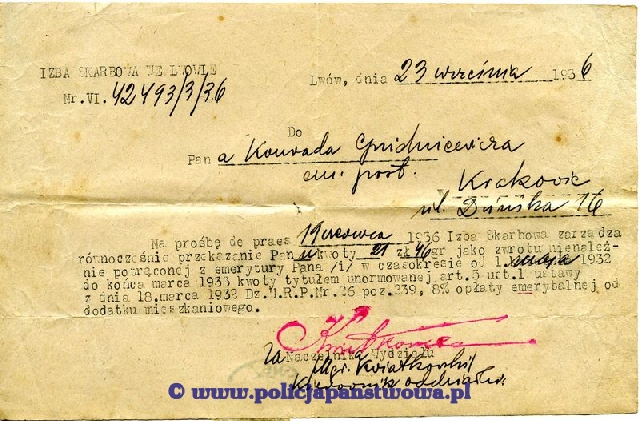 IZBA SKARBOWA WE LWOWIE
Lwów, dnia 23 września 1936
Nr.VI. 42493/3/36
Do
Pana Konrada Gnidniewicza
em. post.
Kraków
ul. 16
Na prośbę de praes 19 czerwca 1936 Izba Skarbowa zarządza
równocześnie przekazanie Panu kwoty 21 zł 46 gr jako zwrotu nienależ-
nie potrąconej z emerytury Pana /i/ w czasokresie od 1. maja 1932
do końca marca 1933 kwoty tytułem unormowanej art.5 ust.1 ustawy
z dnia 18.marca 1932 Dz.U.R.P.Nr.26 poz.239, 8% opłaty emerytalnej od
dodatku mieszkaniowego.
za Naczelnika Wydziału
Mgr. Kwiatkowski
Kierownik oddziału
© www.policjapanstwowa.pl